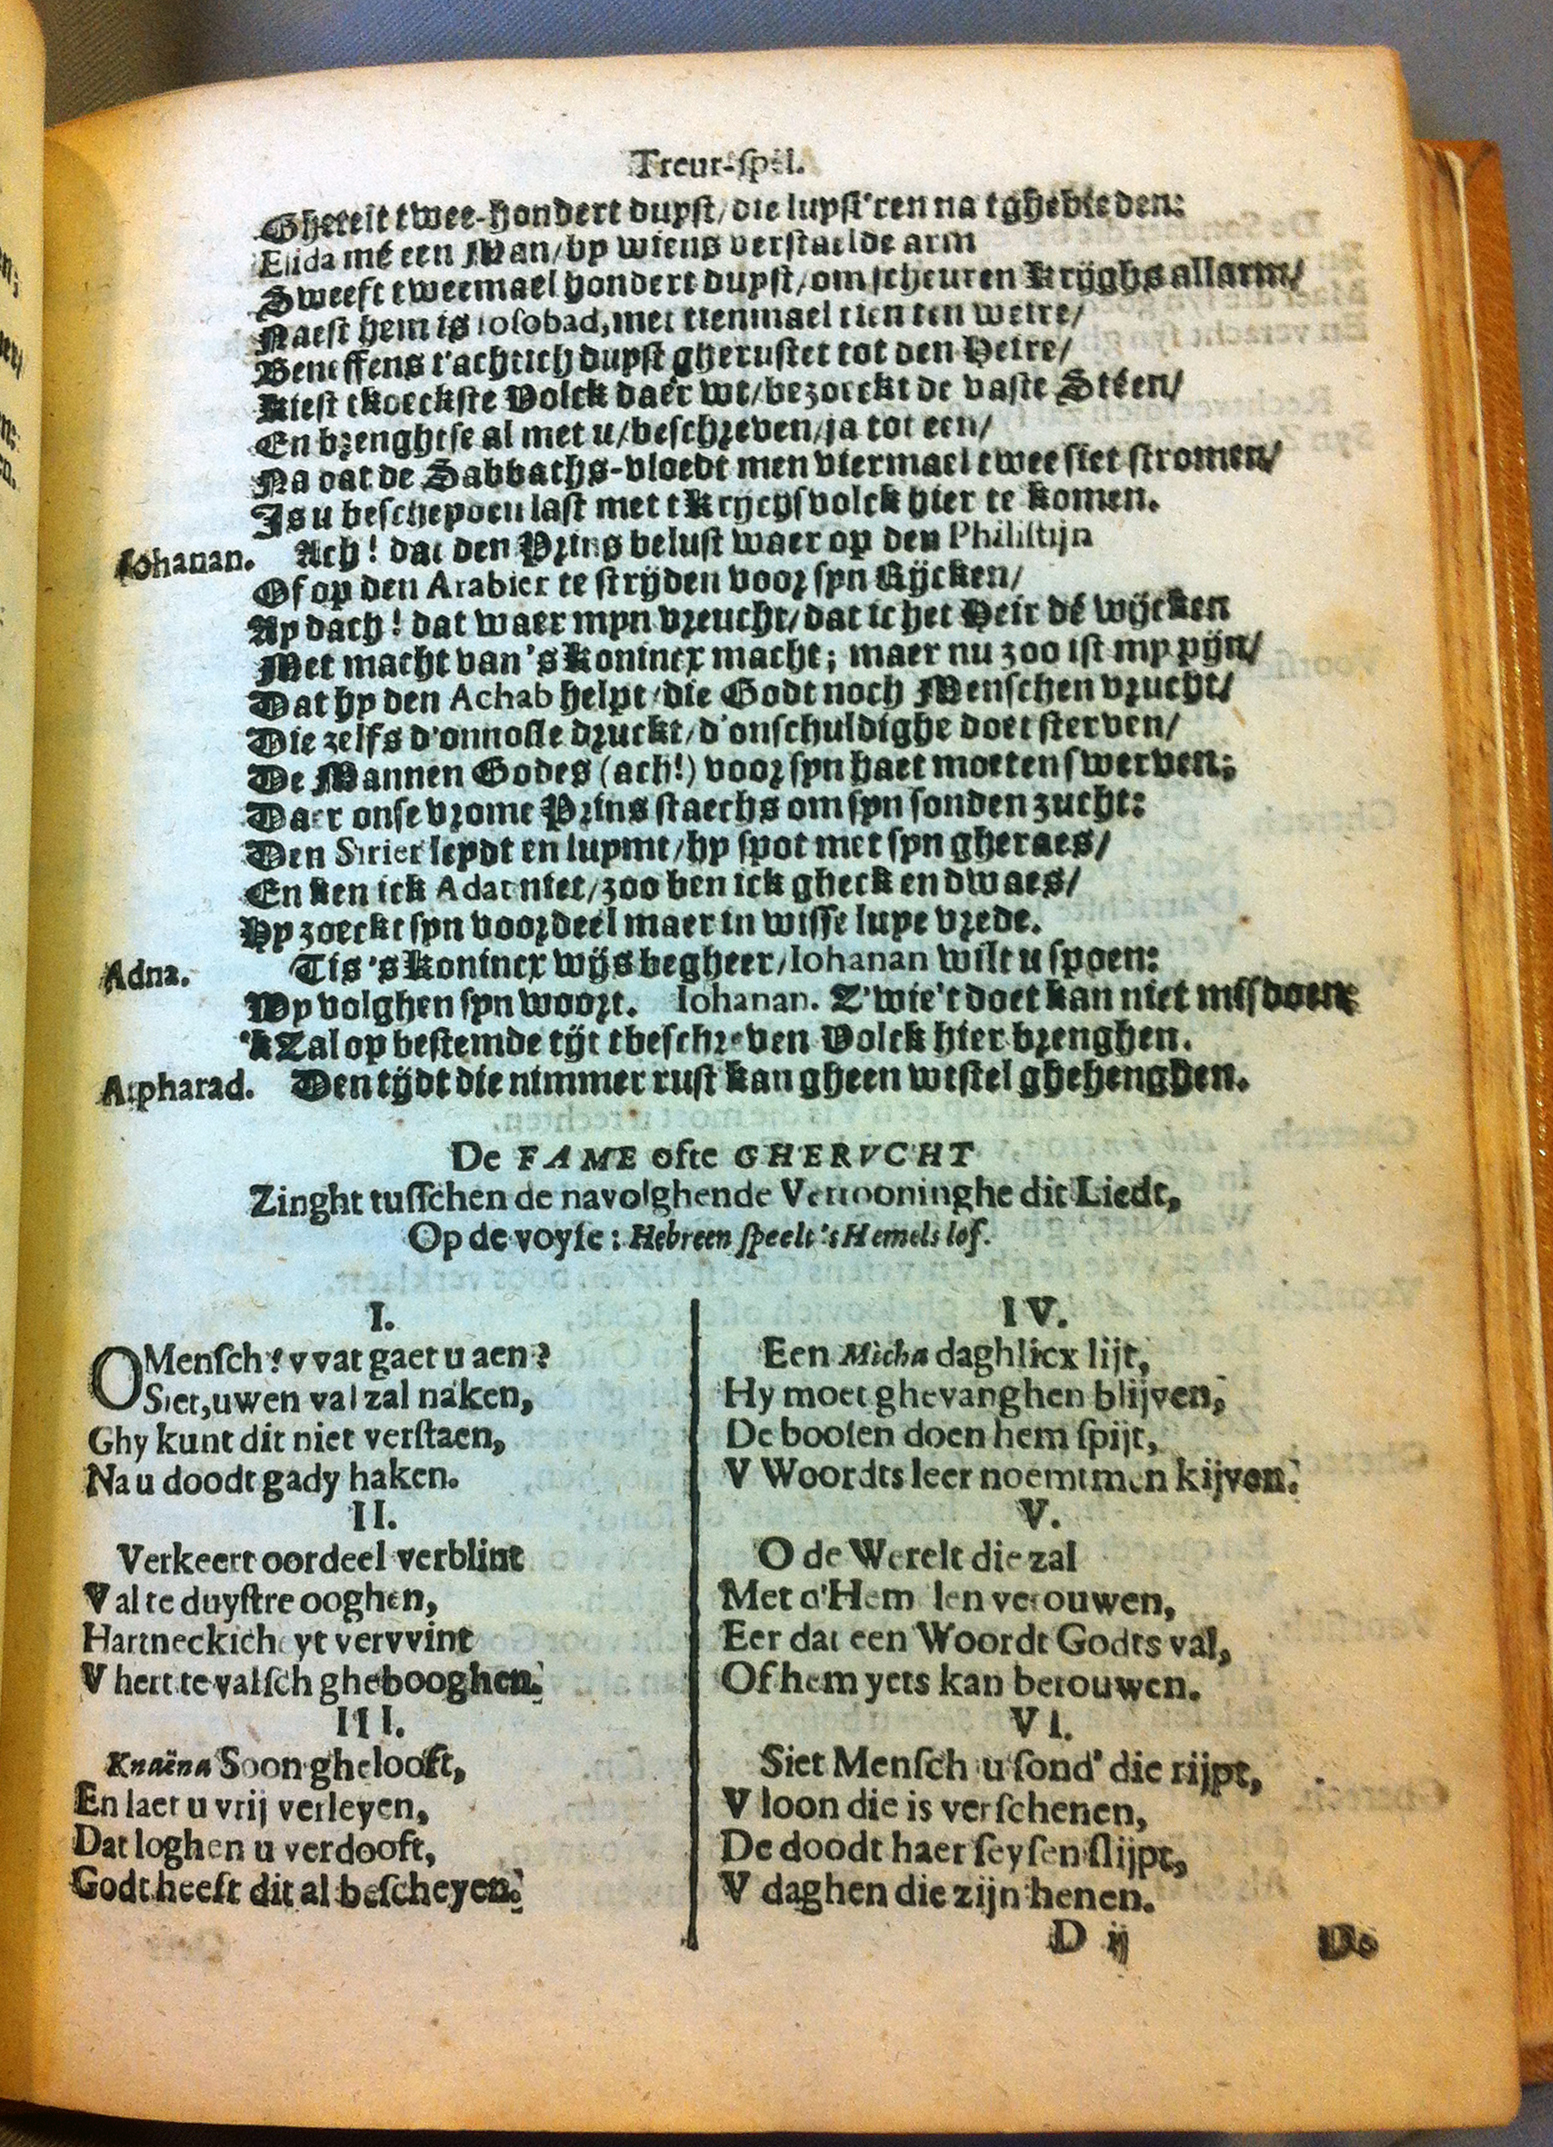 Treur-spel.
Ghereit twee-hondert duyst/die luyst'ren na tghebieden:
Elida mé een Man/by wiens verstaelde arm
Sweeft tweemael hondert duyst/om scheuren krijghs allarm/
Naest hem is Iosobad, met tienmael tien ten weire/
Beneffens t'achtich duyst gherustet tot den Heire/
kiest tkoeckste Volck daer wt/bezoeckt de vaste Stéen/
En brenghtse al met u/beschreven/ja tot een/
Na dat de Sabbaths-vloedt men viermael twee siet stromen/
Is u bescheyden last met tKrijchsvolck hier te komen.
Iohanan. Ach! dat den Prins belust waer op den Philistijn
Of op den Arabier te strijden voor syn Rijcken/
Ay dach! dat waer myn vreucht/dat ic het Heir dé wijcken
Met macht van 's konincx macht; maer nu zoo ist my pijn/
Dat hy den Achab helpt/die Godt noch Menschen vrucht/
Die zelfs d'onnosle druckt/d'onschuldighe doet sterven/
De Mannen Godes (ach!) voor syn haet moeten swerven;
Daer onse vrome Prins staechs om syn sonden zucht:
Den Sirier leydt en luymt/hy spot met syn gheraes/
En ken ick Adat niet/zoo ben ick gheck en dwaes/
Hy zoeckt syn voordeel maer in wisse luye vrede.
Adna. Tis 's konincx wijs begheer/Iohanan wilt u spoen:
Wy volghen syn woort. Iohanan. Z'wie't doet kan niet misdoen;
'k Zal op bestemde tijt tbeschreven Volck hier brenghen.
Atpharad. Den tijdt die nimmer rust kan gheen wistel ghehenghen.
De FAME ofte GHERVCHT
Zinght tusschen de navolghende Vertooninghe dit Liedt,
Op de voyse: Hebreen speelt 's Hemels lof.
I.
O Mensch! vvat gaet u aen?
Siet, uwen val zal naken,
Ghy kunt dit niet verstaen,
Na u doodt gady haken.
II.
Verkeert oordeel verblint
V al te duystre ooghen,
Hartneckicheyt vervvint
V hert te valsch ghebooghen.
III.
Knaëna Soon ghelooft,
En laet u vrij verleyen,
Dat loghen u verdooft,
Godt heeft dit al bescheyen.
IV.
Een Micha daghlicx lijt,
Hy moet ghevanghen blijven,
De boosen doen hem spijt,
V Woordts leer noemt men kijven.
V.
O de Werelt die zal
Met d'Hemlen verouwen,
Eer dat een Woordt Godts val,
Of hem yets kan berouwen.
VI.
Siet Mensch u sond' die rijpt,
V loon die is verschenen,
De doodt haer seysen slijpt,
V daghen die zijn henen.
D ij
De